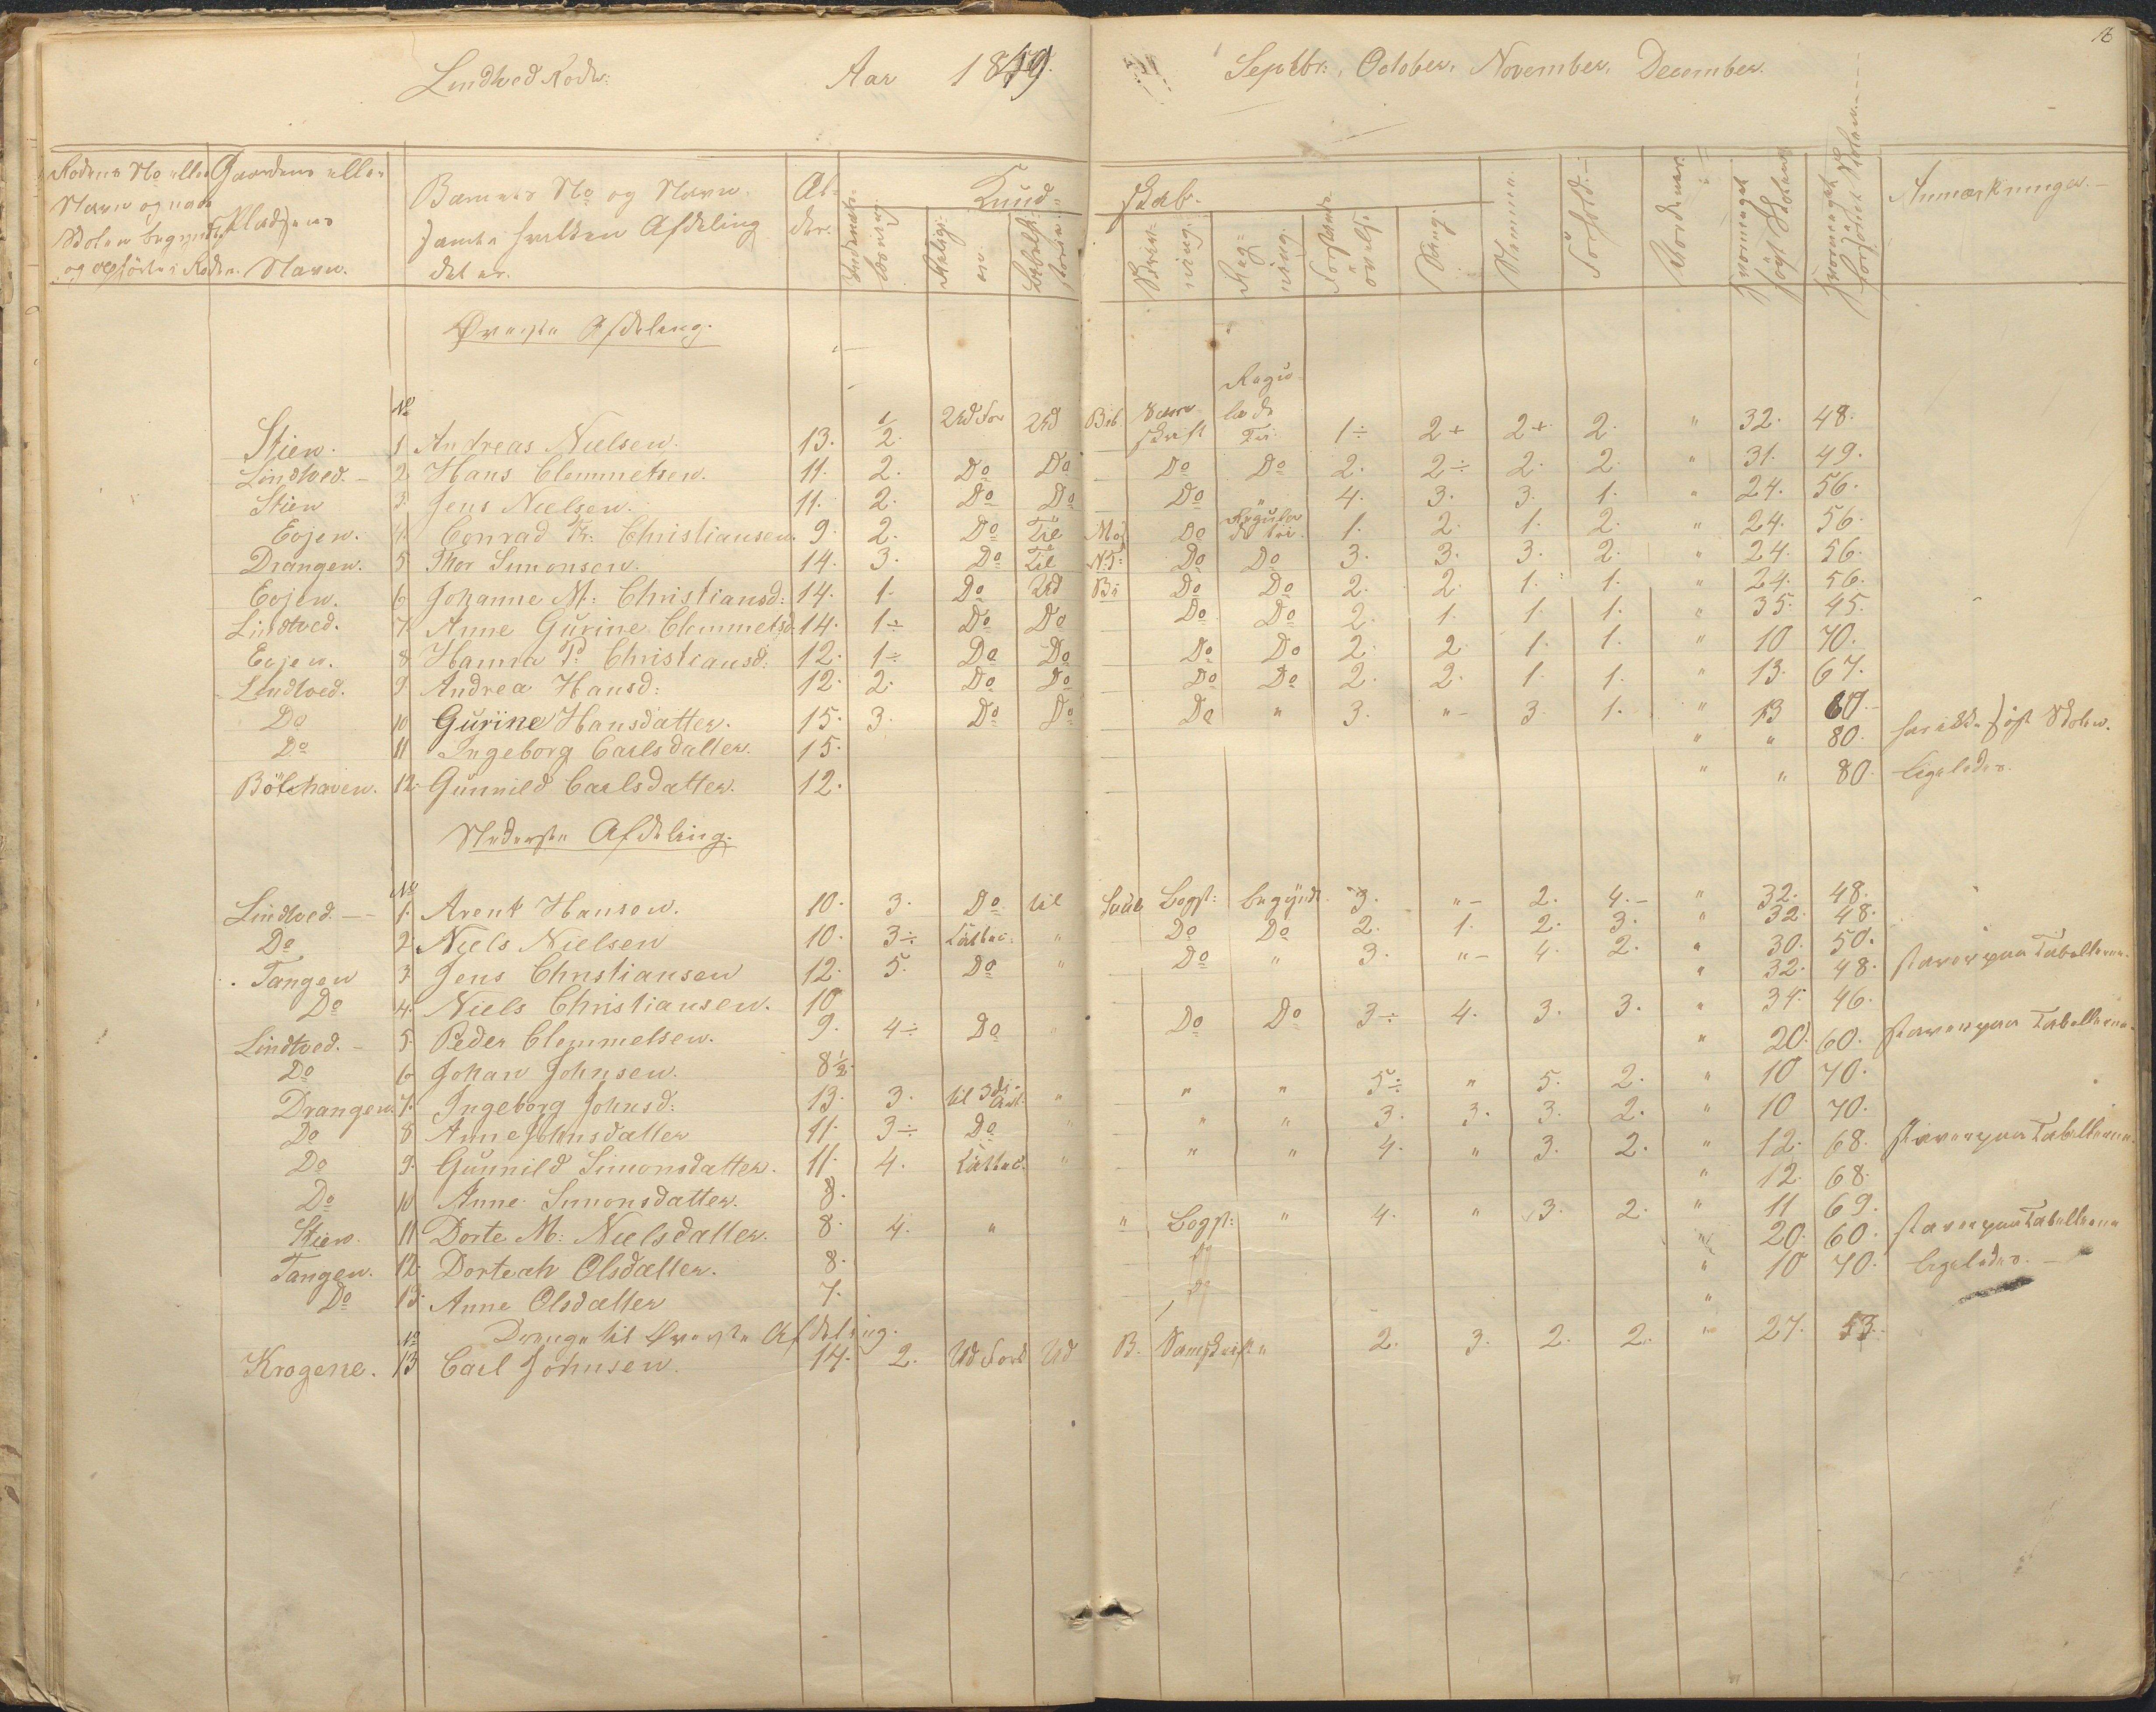 Lindtved Rode: Aar 1849. Septbr:, October, November, December. 16
Rodens No eller Navn og naar Skolen begyndte og ophörte i Roden.
Gaardens eller Pladsens Navn.
Barnets No og Navn samt i hvilken Afdeling det er.
Alder.
Kundskab.
Indenadslæsning.
Religion.
Bibelhistorie.
Skrivning.
Regning.
Forstandsövelse
Sang.
Nemme.
Forhold.
Hvormeget sögt Skolen
Hvormeget forsömt Skolen
Anmærkninger.
Øverste Afdeling.
No
Stien. 1 Andreas Nielsen. 13. 2. Ud For Ud Bib. Sam skrift Regulade Tri 1÷ 2+ 2+ 2. " 32. 48.
Lindtved. 2 Hans Clemmetsen. 11. 2. Do Do Do Do 2. 2÷ 2. 2. " 31. 49.
Stien 3. Jens Nielsen. 11. 2. Do Do Do " 4. 3. 3. 1. " 24. 56.
Eojen. 4. Conrad Fr. Christiansen. 9. 2. Do Til Mos Do Regula de tri. 1. 2. 1. 2. " 24. 56.
Drangen. 5. Thor Simonsen. 14. 3. Do Til N.T: Do Do 3. 3. 3. 2. " 24. 56.
Eojen. 6 Johanne M: Christiansd: 14. 1. Do Ud Bi Do Do 2. 2. 1. 1. " 24. 56.
Lindtved. 7. Anne Gurine Clemmetsd. 14. 1÷ Do Do Do Do 2. 1. 1. 1. " 35. 45.
Eojen. 8 Hanna P. Christiansd: 12. 1÷ Do Do Do Do 2. 2. 1. 1. " 10 70.
Lindtved. 9 Andrea Hansd: 12. 2. Do Do Do Do 2. 2. 1. 1. " 13. 67.
Do 10 Gurine Hansdatter. 15. 3. Do Do Do " 3. "- 3. 1. " 13 67.
Do 11 Ingeborg Carlsdatter. 15. " " 80. har ikke sögt Skolen.
Bötchaven. 12. Gunnild Carlsdatter. 12. " " 80. ligeledes.
Nederste Afdeling.
No
Lindtved. 1. Arent Hansen. 10. 3. Do til Saul Bogst: begynd. 3. "- 2. 4.- " 32. 48.
Do 2. Niels Nielsen 10. 3÷ Do Do 2. 1. 2. 3. " 32. 48.
Tangen 3 Jens Christiansen 12. 5. Do " Do " 3. "- 4. 2. " 30. 50.
Do 4. Niels Christiansen. 10 " 32. 48. staver paa Tabellerne.
Lindtved. 5. Peder Clemmetsen. 9. 4÷ Do " Do Do 3÷ 4. 3. 3. " 34. 46.
Do 6 Johan Johnsen. 8½ " 20. 60. staver paa Tabellerne.
Drangen. 7. Ingeborg Johnsd: 13. 3. til 3die Art: " " " 5÷ " 5. 2. " 10 70.
Do 8 Anne Johnsdatter 11. 3÷ Do " " " 3. 3. 3. 2. " 10 70.
Do 9. Gunnild Simonsdatter. 11. 4. " " " 4. " 3. 2. " 12. 68.
Do 10 Anne Simonsdatter. 8. " 12. 68. staver paa Tabellerne.
Stien. 11 Dorte M: Nielsdatter. 8. 4. " " Bogst: " 4. " 3. 2. " 11 69.
Tangen. 12. Dorteah Olsdatter. 8. Do " 20. 60. staver paa Tabellerne
Do 13. Anne Olsdatter 7. Do " 10 70. ligeledes.
No Drenge til Øverste Afdeling.
Krogene. 13 Carl Johnsen. 14. 2. Ud Ford Ud B. Samskrift " 2. 3. 2. 2. " 27. 53.